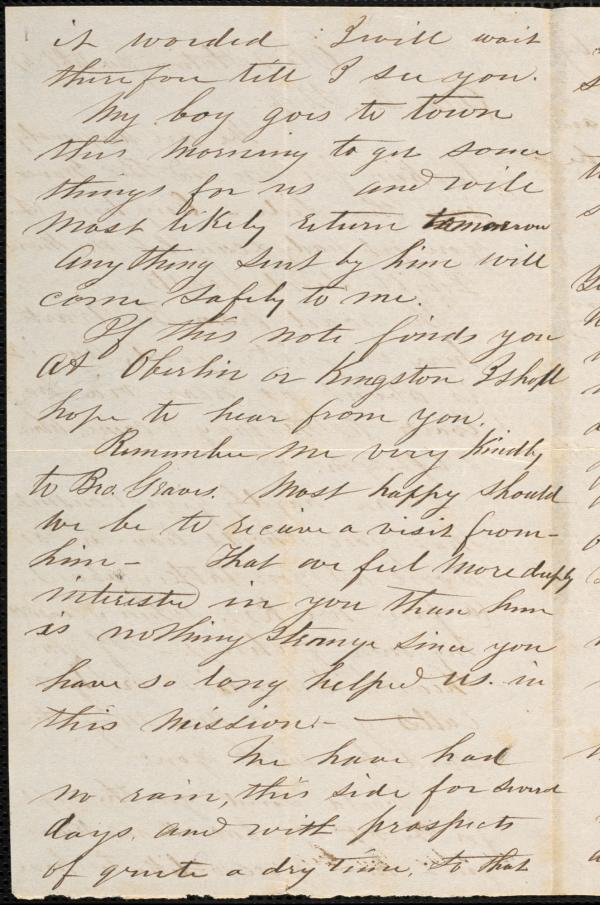 it worded I will wait
therefore till I see you.
My boy goes to town
this morning to get some
things for us and will
most likely return tomorrow
Anything sent by him will
come safely to me.
If this note finds you
at Oberlin or Kingston I shall
hope to hear from you.
Remember me very kindly
to Bro. Graves. Most happy should
we be to receive a visit from
him - That we feel more deeply
interested in you than him
is nothing strange since you
have so long helped us in
this mission. -
We have had
no rain, this side for several
days. and with prospects
of quite a dry time, so that